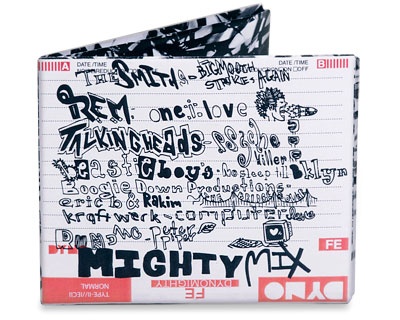 A DATE/TIME DATE/TIME B
THE SMITHS - BIGMOUTH STRIKES AGAIN
REM - one i love
TALKINGHEADS - psycho Killer
Beastie boys, no sleep til Bklyn
Boogie Down Productions -
eric b & Rakim
kraftwerk - computer love
Run DMC - Peter Piper
FE
MIGHTY MIX
TYPE II (IEC II)
NORMAL
DYNOMIGHTY
FE
DYNO